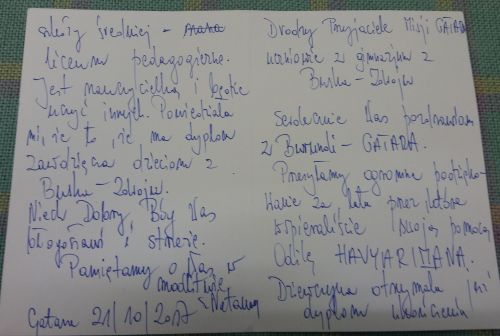 Drodzy Przyjaciele Misji GATARA
uczniowie z gimnazjum z
Buska-Zdroju
Serdecznie Was pozdrawiam
z Burundi - GATARA.
Przesyłamy ogromne podzięko-
wanie za lata przez które
wspieraliście swoją pomocą
Odilę HAVYARIMANA.
Dziewczyna otrzymała już
dyplom ukończenia
szkoły średniej -
liceum pedagogiczne.
Jest nauczycielką i będzie
uczyć innych. Powiedziała
mi, że to, że ma dyplom
zawdzięcza dzieciom z
Buska-Zdroju.
Niech Dobry Bóg Was
błogosławi i strzeże.
Pamiętamy o Was w
modlitwie
Gatara 21/10/2017 s. Natalia